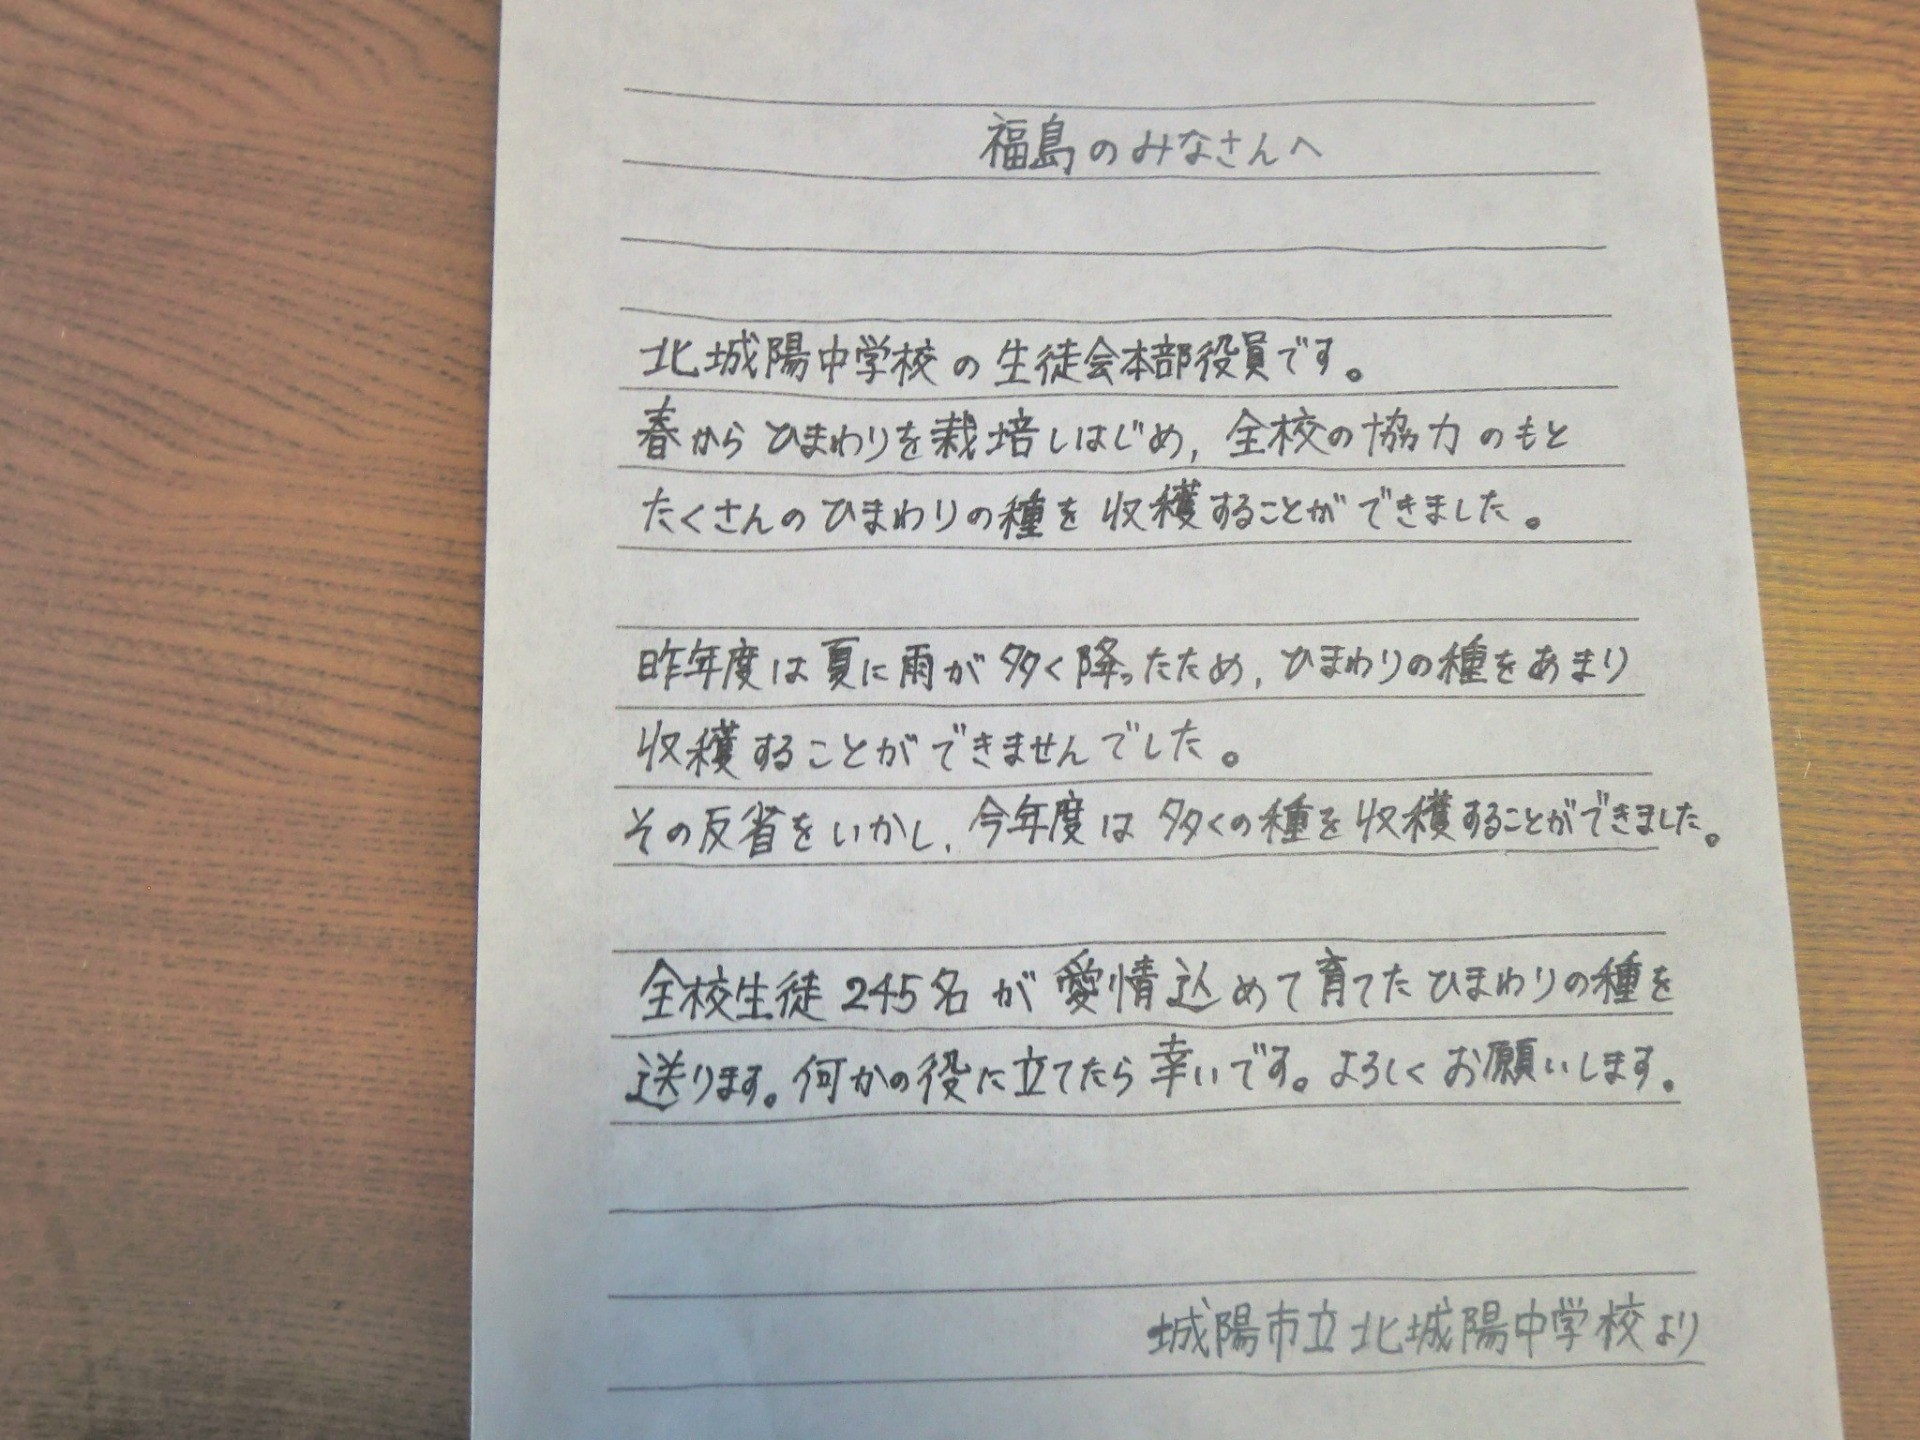 福島のみなさんへ
北城陽中学校の生徒会本部役員です。
春からひまわりを栽培しはじめ，全校の協力のもと
たくさんのひまわりの種を収穫することができました。
昨年度は夏に雨が多く降ったため，ひまわりの種をあまり
収穫することができませんでした。
その反省をいかし，今年度は多くの種を収穫することができました。
全校生徒245名が愛情込めて育てたひまわりの種を
送ります。何かの役に立てたら幸いです。よろしくお願いします。
城陽市立北城陽中学校より